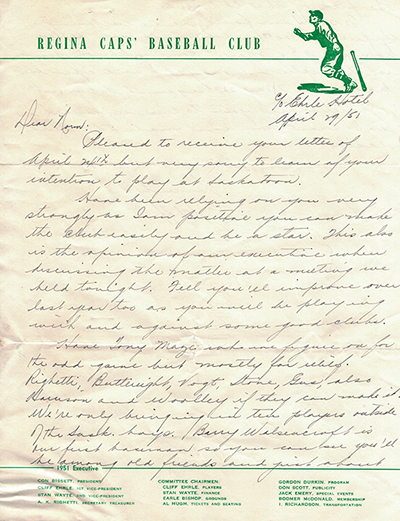 REGINA CAPS' BASEBALL CLUB
c/o Ehrle Hotel
April 29/51
Dear Norm:
Pleased to receive your letter of
April 24th but very sorry to learn of your
intention to play at Saskatoon.
Have been relying on you very
strongly as I am positive you can make
the club easily and be a star. This also
is the opinion of our executive when
discussing the matter at a meeting we
held tonight. Feel you'll improve over
last year too as you will be playing
with and against some good clubs.
Have Tony Maze whom we figure on for
the odd game but mostly for relief.
Righetti, Vogt, Stone, Gus, also
and Woolley if they can make it.
We're only bringing in ten players outside
of the Sask. boys. Barry is
our first baseman, so you can see you'll
be among old friends and just about
1951 Executive
CON BISSETT, PRESIDENT
CLIFF EHRLE, 1ST VICE-PRESIDENT
STAN WAYTE, 2ND VICE-PRESIDENT
A. R. RIGHETTI, SECRETARY TREASURER
COMMITTEE CHAIRMEN:
CLIFF EHRLE, PLAYERS
STAN WAYTE, FINANCE
EARLE BISHOP, GROUNDS
AL HUGH, TICKETS AND SEATING
GORDON DURKIN, PROGRAM
DON SCOTT, PUBLICITY
JACK EMERY, SPECIAL EVENTS
BOOMER McDONALD, MEMBERSHIP
L. RICHARDSON, TRANSPORTATION